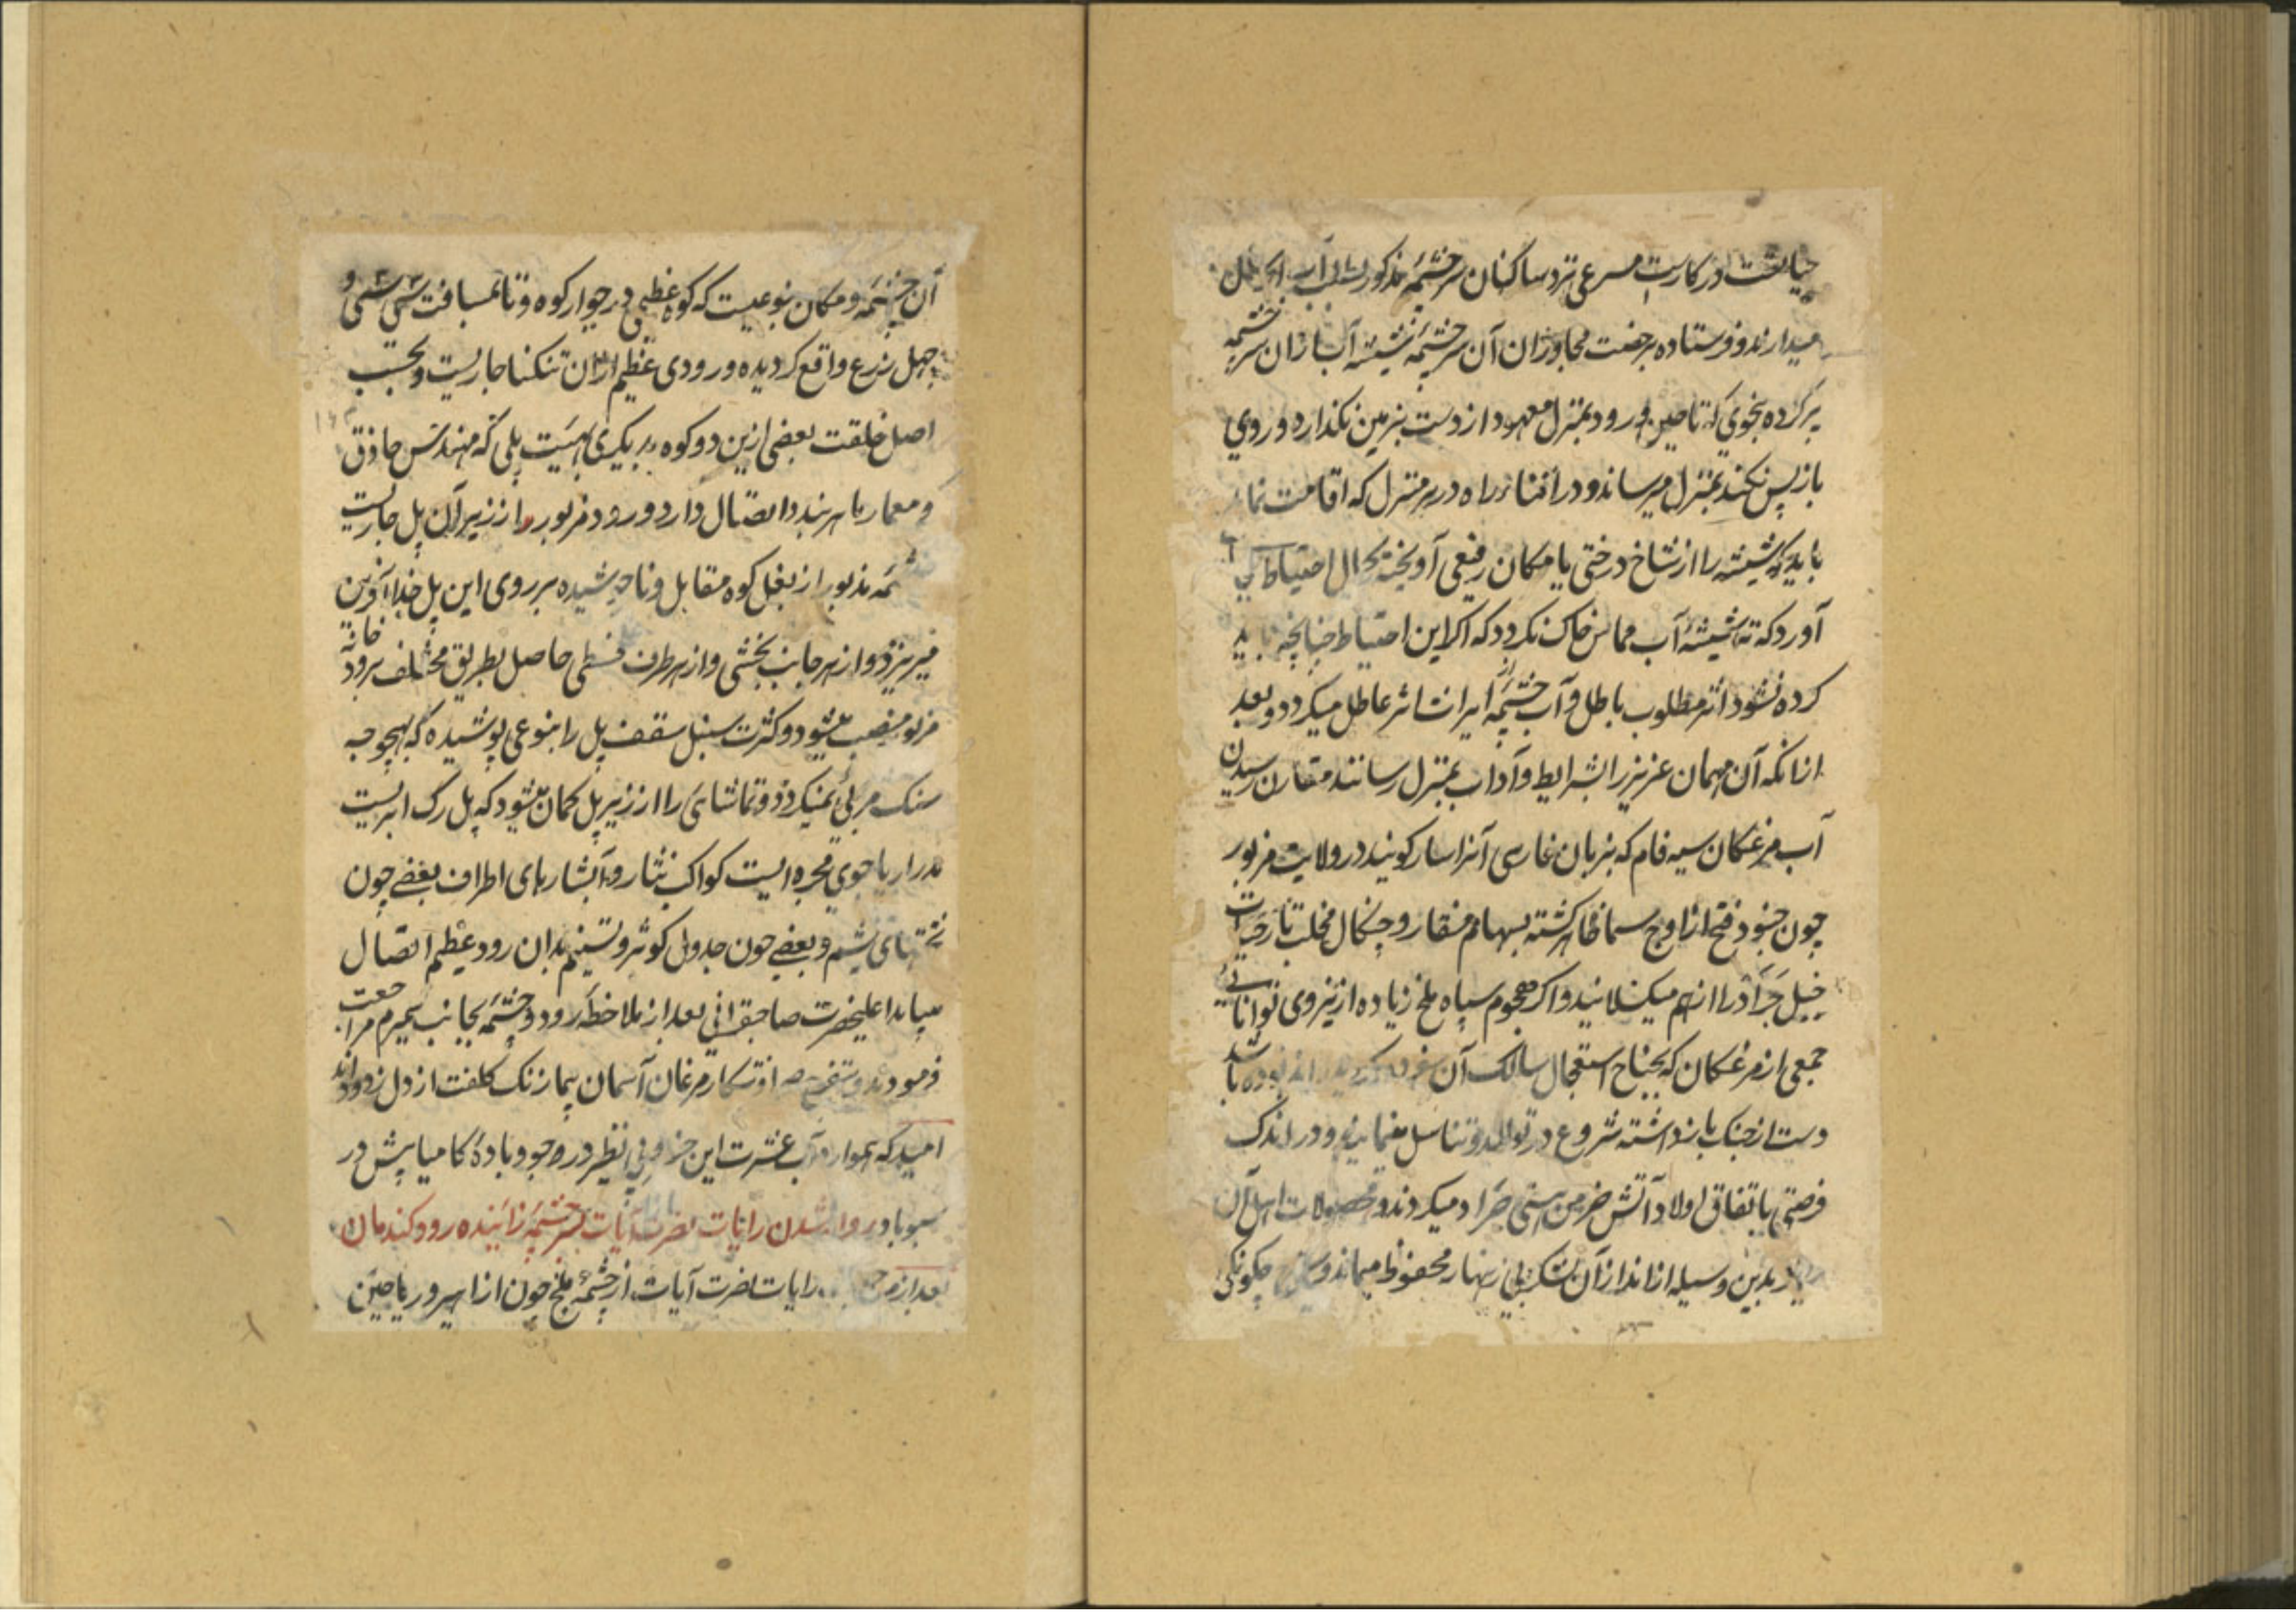 در کارست مسرعی نزد ساکنان سرچشمه مذکور آب
میدارند و فرستاده برخصت مجاوران آن سرچشمه شیشه آب ازان سرچشمه
پر کرده بنحوی که تا حین ورود بمنزل معهود از دست بزمین نکذارد و روی
باز پس نکند بمنزل میرساند و در اثنای راه در هر منزل که اقامت نماید
باید که شیشه را از شاخ درختی یا مکان رفیعی آویخته کمال احتیاط بجای
آورد که ته شیشه آب مماس خاک نکردد که اکر این احتیاط چنانچه باید
کرده نشود اثر مطلوب باطل و آب چشمه از ایراث اثر عاطل میکردد و بعد
ازانکه آن مهمان عزیز را بشرایط و آداب بمنزل رسانند مقارن رسیدن
آب مرغکان سیه فام که بزبان فارسی آنرا سار کویند در ولایت مزبور
چون جنود فتح از اوج سما ظاهر کشته بسهام منقار و چنکال مخلب تار حیات
خیل جراد را از هم میکسلانند و اکر هجوم سپاه ملخ زیاده از نیروی توانائی
جمعی از مرغکان که بجناح استعجال سالک آن بوده باشد
دست از جنک باز نداشته شروع در توالد و تناسل مینمایند و در اندک
فرصتی باتفاق اولاد آتش خرمن هستی جراد میکردند و محصولات اهل آن
دیار بدین وسیله از انداز آن لشکر بی زنهار محفوظ میماند و چکونکی
آن چشمه و مکان بنوعیست که کوه عظیمی در جوار کوه وناغ بمسافت سی سی و
چهل ذرع واقع کردیده و رودی عظیم ازان تنکنا جاریست و بحسب
اصل خلقت بعضی ازین دو کوه بر یکدیکر بهیئت پلی که مهندس حاذق
و معمار ماهر بندد اتصال دارد و رود مزبور از زیر آن پل جاریست
چشمه مذبور از بغل کوه مقابل وناغ جوشیده بر روی این پل خدا آفرین
میریزد و از هر جانب بخشی و از هر طرف قسطی حاصل بطریق مختلف برودخانه
مزبور منصب میشود و کثرت سنبل سقف پل را بنوعی پوشیده که بهیچوجه
سنک مرئی نمیکردد و تماشائی را از زیر پل کمان میشود که پل رک ابریست
مدرار یا جوی مجره ایست کواکب نثار و آبشارهای اطراف بعضی چون
تختهای یشم و بعضی چون جدول کوثر و تسنیم بدان رود عظیم اتصال
میابد اعلیحضرت صاحبقرانی بعد از ملاحظه رود و چشمه بجانب مخیم مراجعت
فرمودند و بتفرج و شکار مرغان آسمان پیما زنک کلفت از دل زدودند
امید که همواره آب عشرت این خدیو بی نظیر در جوی وجود و باده کامیابیش در
سبو باد روان شدن رایات نصرت آیات بسرچشمه زاینده رود کندمان
بعد از مراجعت رایات نصرت آیات از چشمه ملخ چون ازاهیر و ریاحین